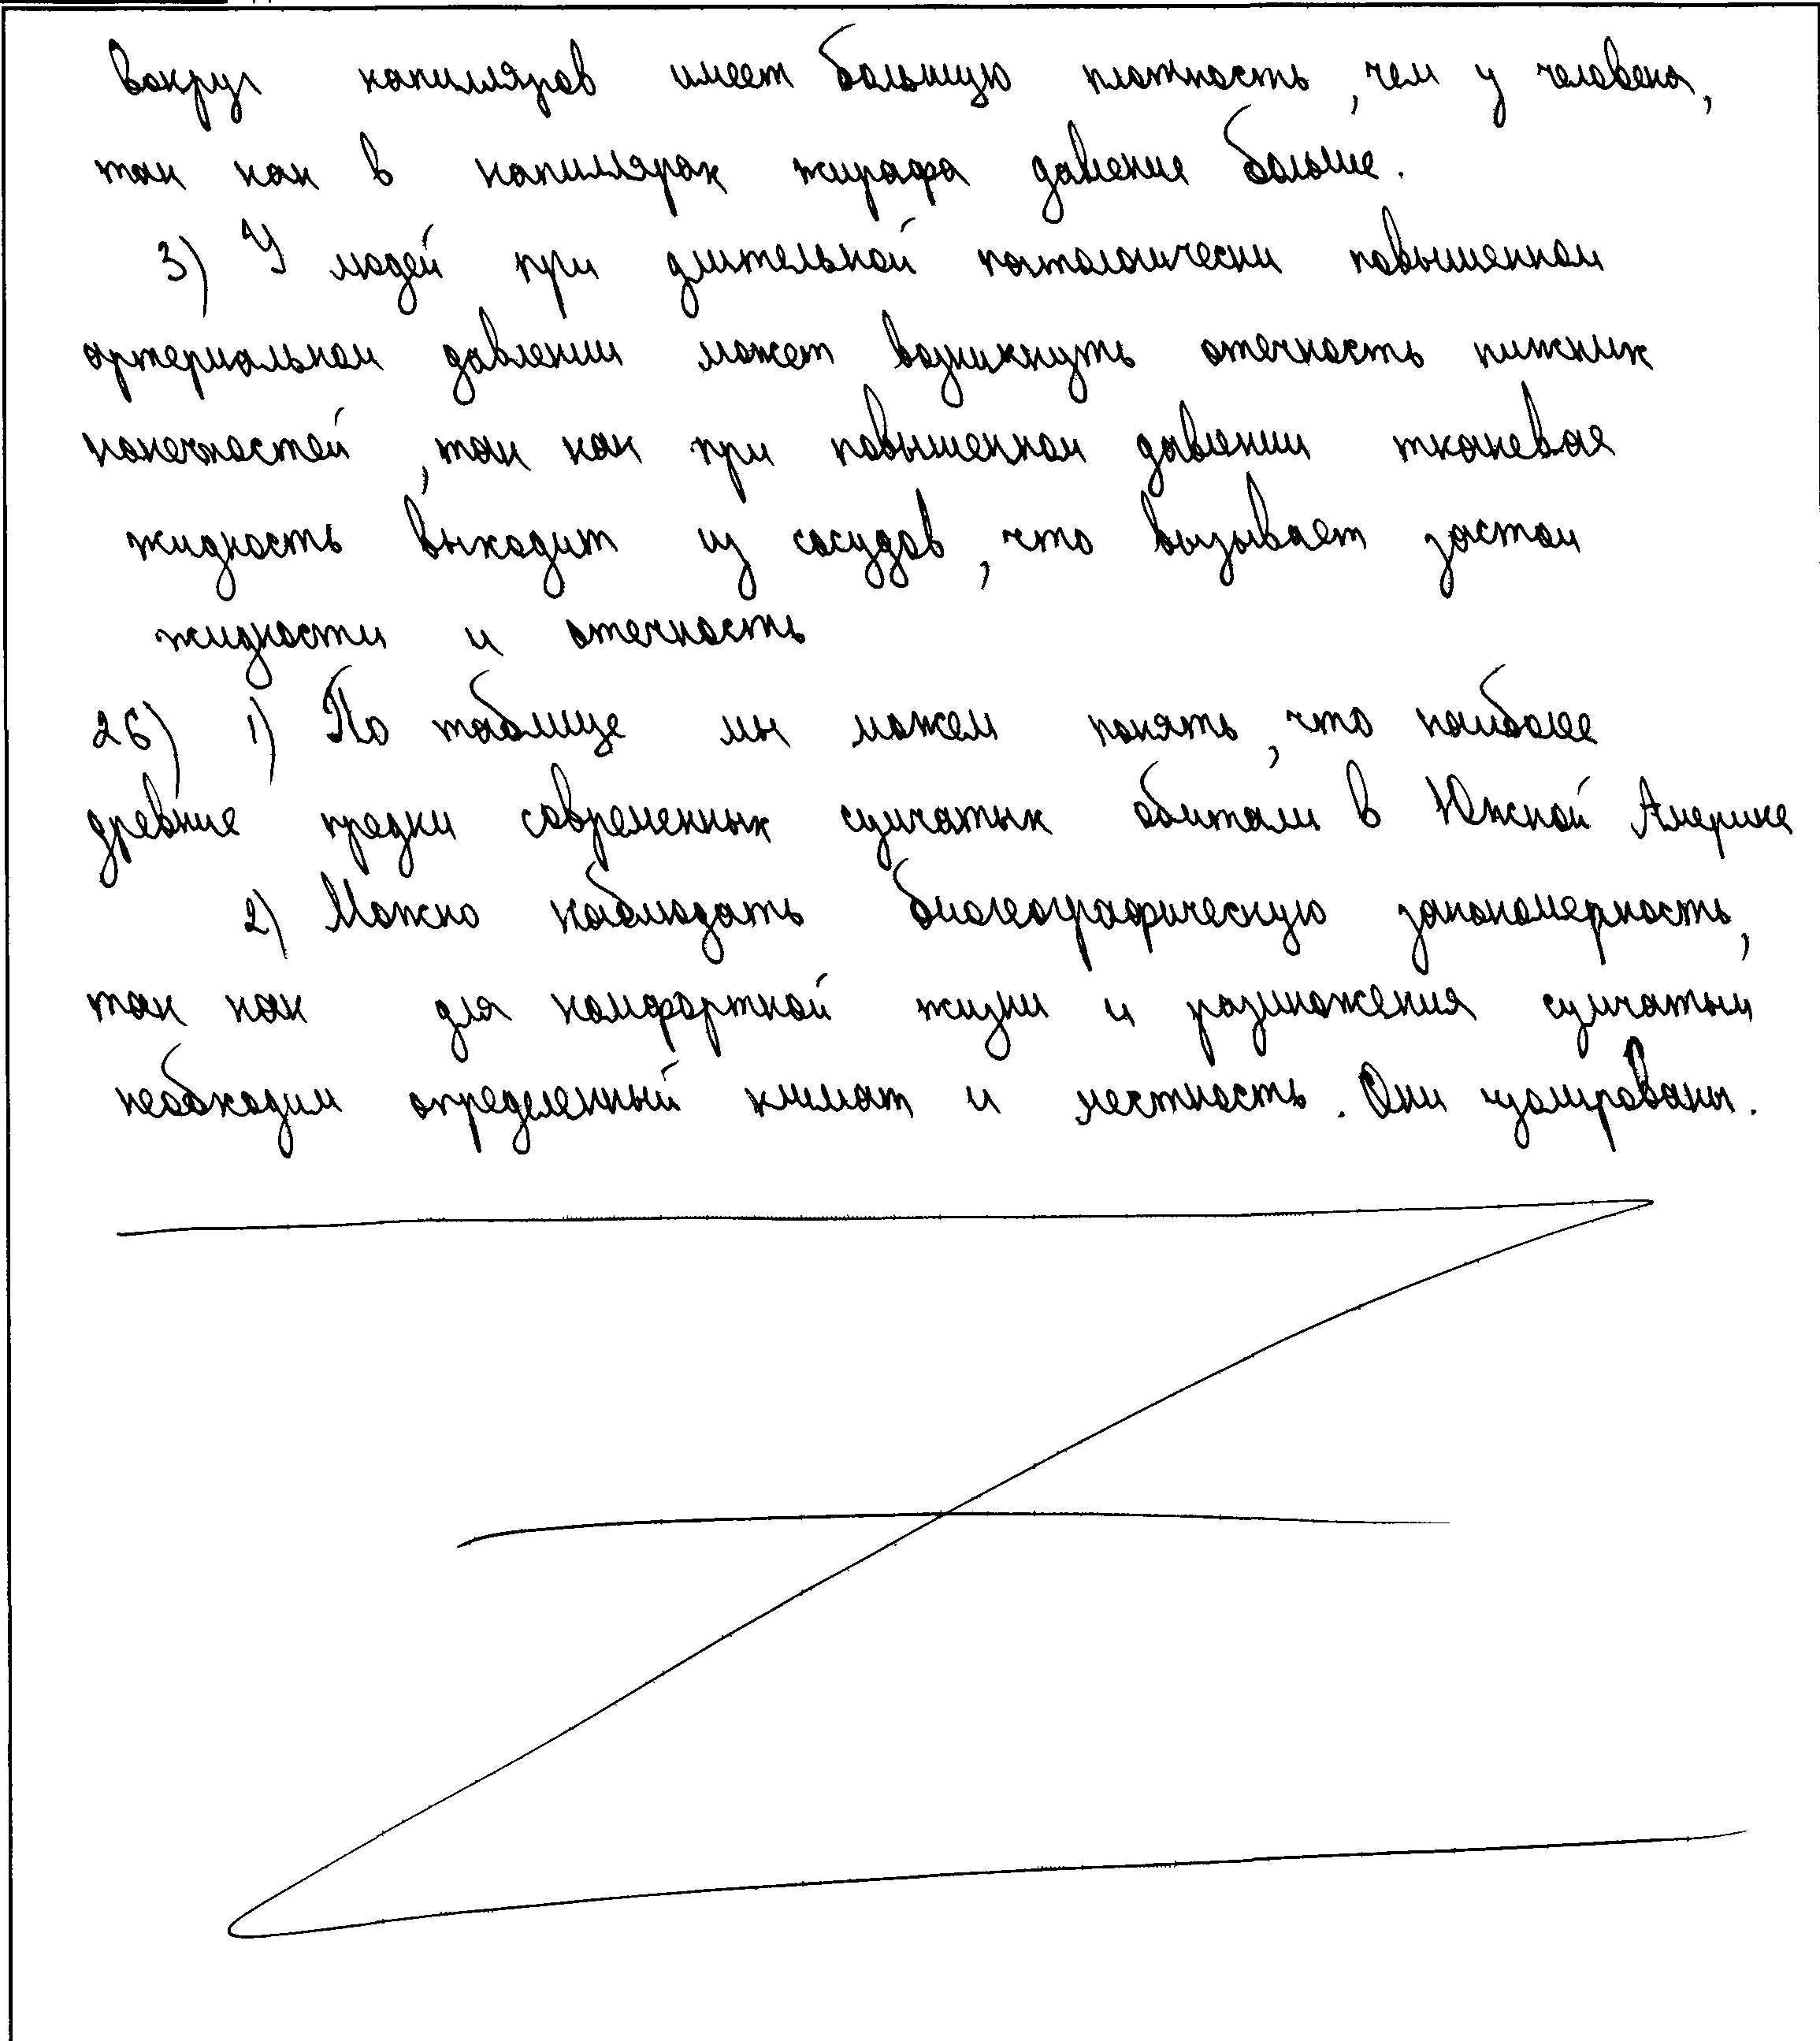 вокруг капилляров имеет большую плотность, чем у человека,
так как в капиллярах жирафа давление больше.
3) У людей при длительной патологически повышенном
артериальном давлении может возникнуть отечность нижних
конечностей, так как при повышенном давлении тканевая
жидкость выходит из сосудов, что вызывает застои
жидкости и отечность
26) 1) По таблице мы можем понять, что наиболее
древние предки современных сумчатых обитали в Южной Америке
2) Можно наблюдать биогеографическую закономерность,
так как для комфортной жизни и размножения сумчатым
необходим определенный климат и местность. Они изолированы.